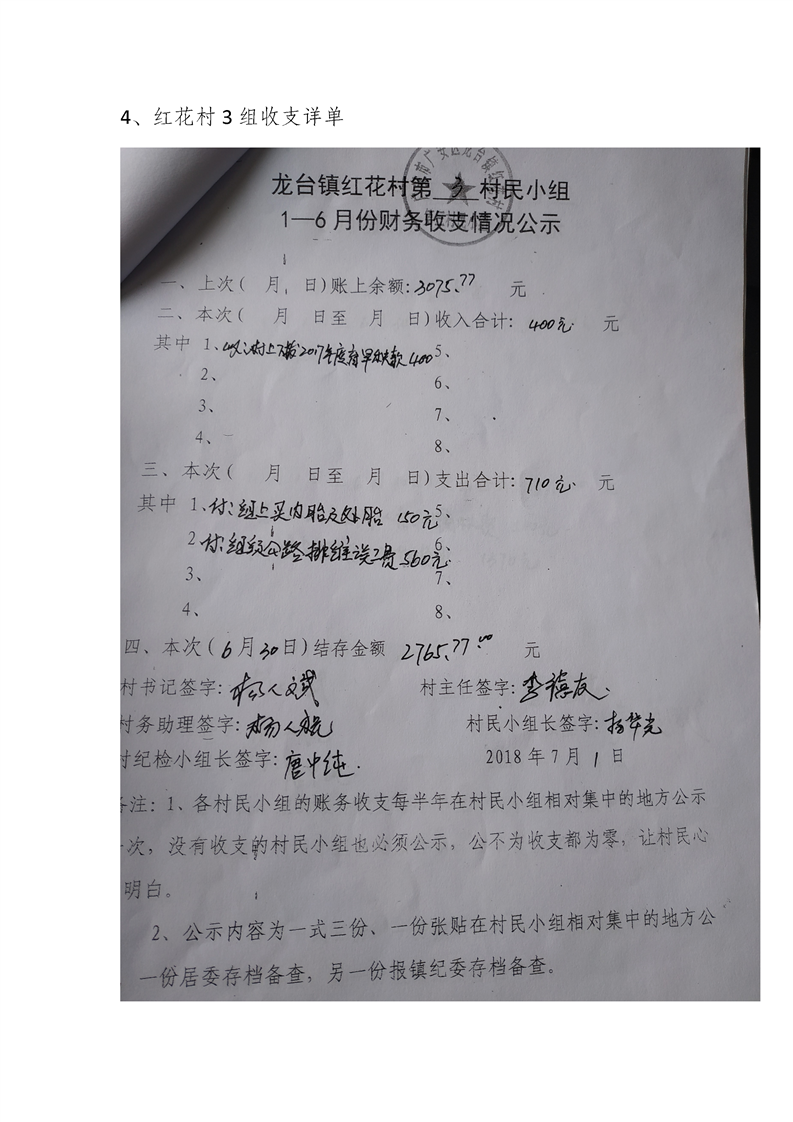 4、红花村 3 组收支详单
龙台镇红花村第 3 村民小组
1—6 月份财务收支情况公示
一、上次( 月 日)账上余额:3075.77 元
二、本次( 月 日至 月 日)收入合计: 400元 元
其中 1、收:村上下拨2017年度 款 400 5、
2、 6、
3、 7、
4、 8、
三、本次( 月 日至 月 日)支出合计: 710元 元
其中 1、付:组上买内胎及外胎 150元 5、
2 付:组 公路排 误工费 560元 6、
3、 7、
4、 8、
四、本次(6月30日)结存金额 2765.77 元
村书记签字: 杨人文 村主任签字: 李禧友
村务助理签字: 杨人 村民小组长签字: 杨华光
村纪检小组长签字: 唐中纯 2018 年 7 月 1 日
备注:1、各村民小组的账务收支每半年在村民小组相对集中的地方公示
一次,没有收支的村民小组也必须公示,公不为收支都为零,让村民心
明白。
2、公示内容为一式三份、一份张贴在村民小组相对集中的地方公
一份居委存档备查,另一份报镇纪委存档备查。